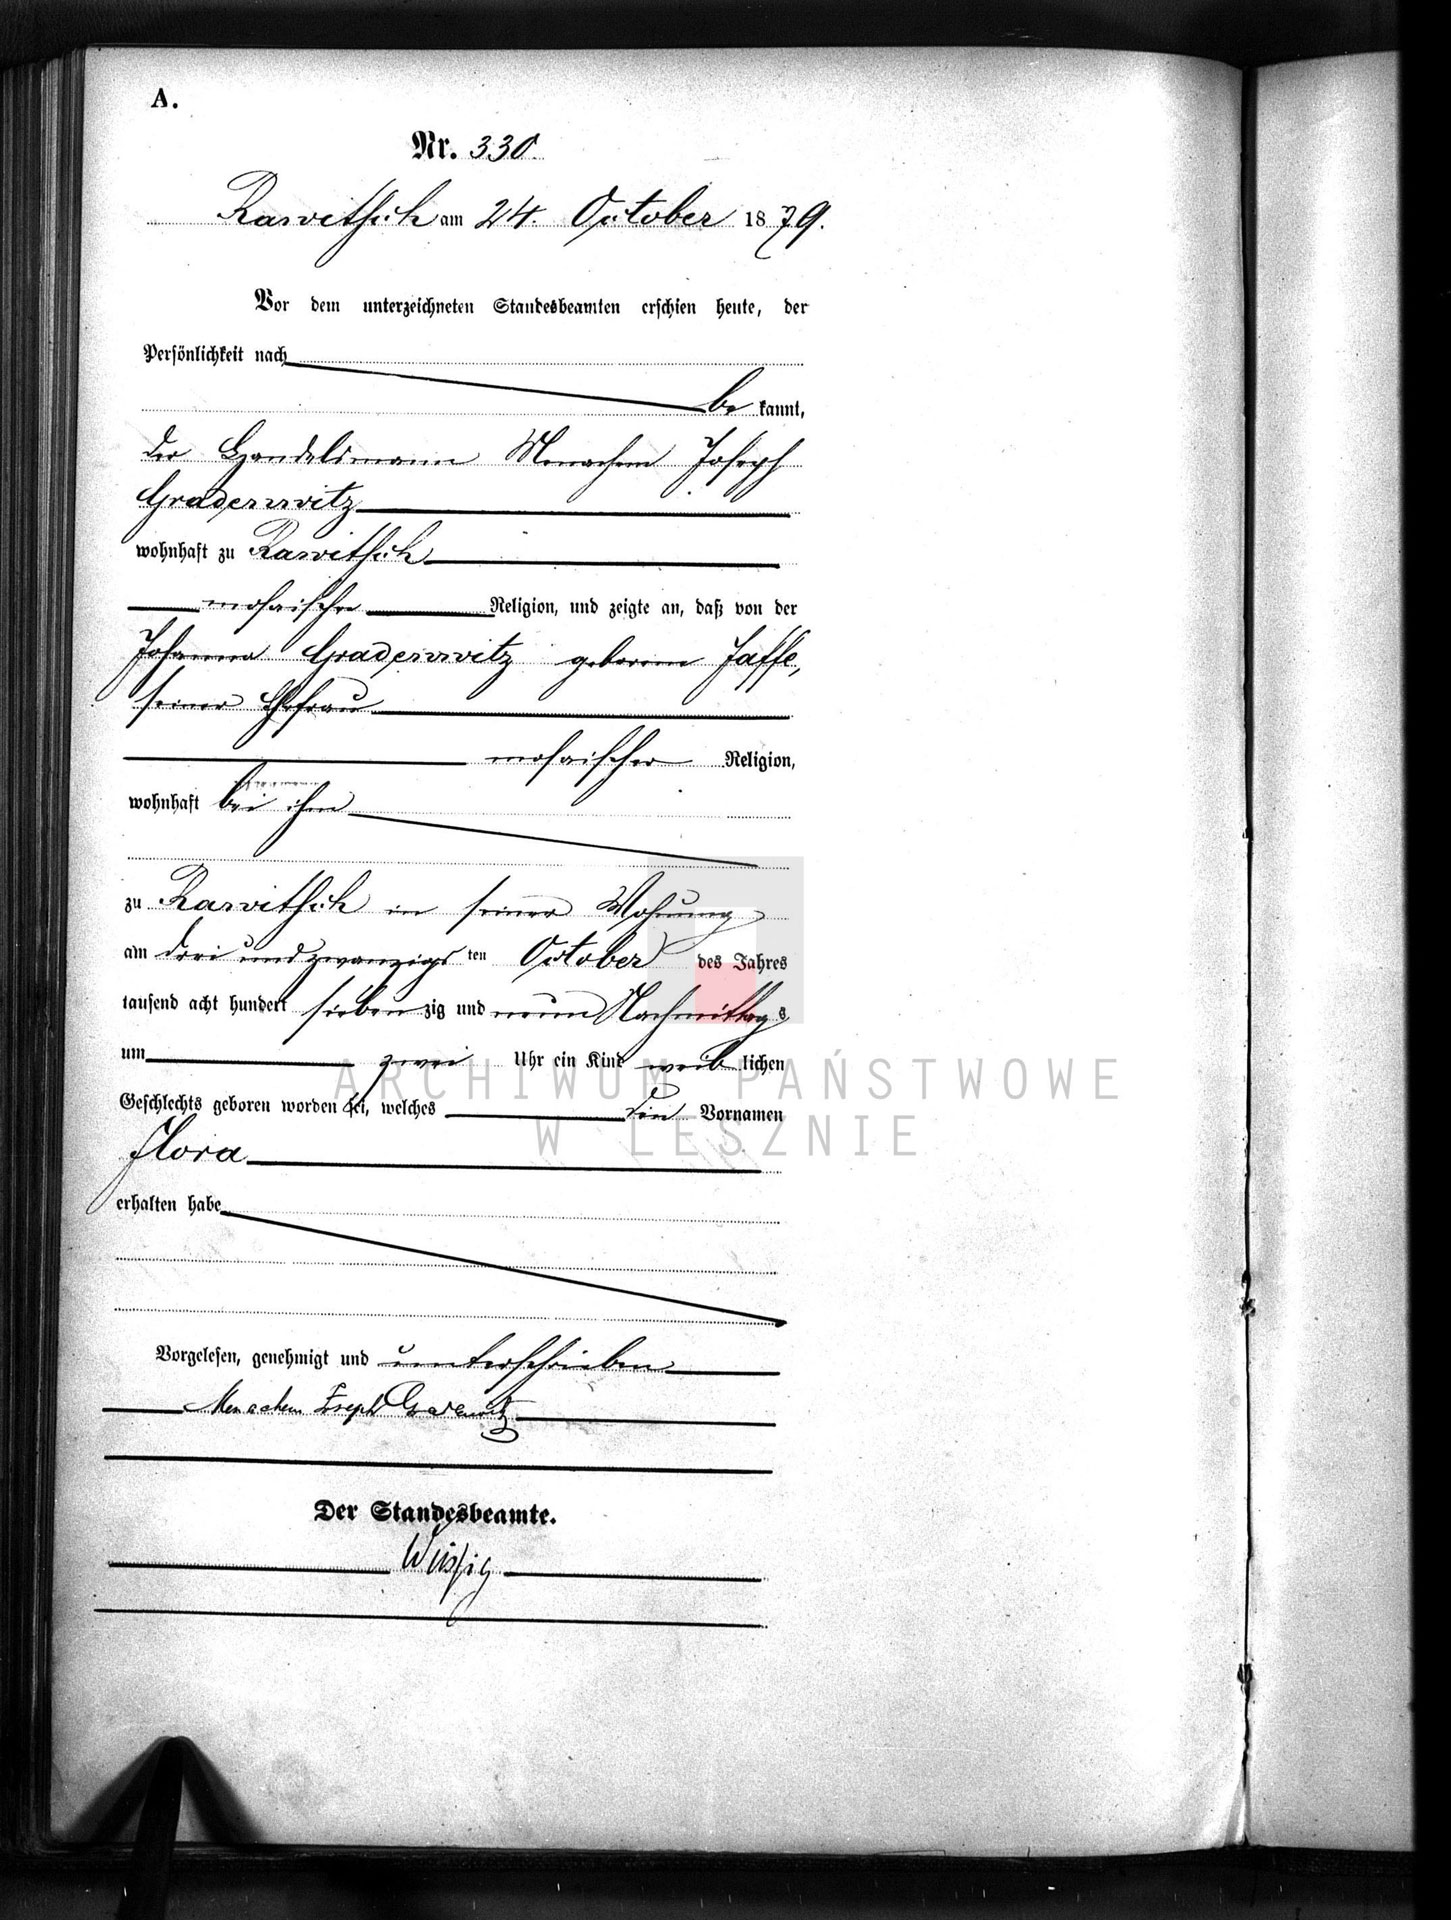 A.
Nr. 330.
Rawitsch am 24. October 1879.
Vor dem unterzeichneten Standesbeamten erschien heute, der
Persönlichkeit nach
be kannt,
der Handelsmann Menachem Joseph
Gradenwitz
wohnhaft zu Rawitsch
mosaischer Religion, und zeigte an, daß von der
Johanna Gradenwitz geborene Jaffe,
seiner Ehefrau
mosaischer Religion,
wohnhaft bei ihm
zu Rawitsch in seiner Wohnung
am drei und zwanzigs ten October des Jahres
tausend acht hundert sieben zig und neun Nachmittag s
um zwei Uhr ein Kind weib lichen
Geschlechts geboren worden sei, welches den Vornamen
ARCHIWUM PAŃSTWOWE
W LESZNIE
Flora
erhalten habe
Vorgelesen, genehmigt und unterschrieben
Menachem Joseph Gradenwitz
Der Standesbeamte.